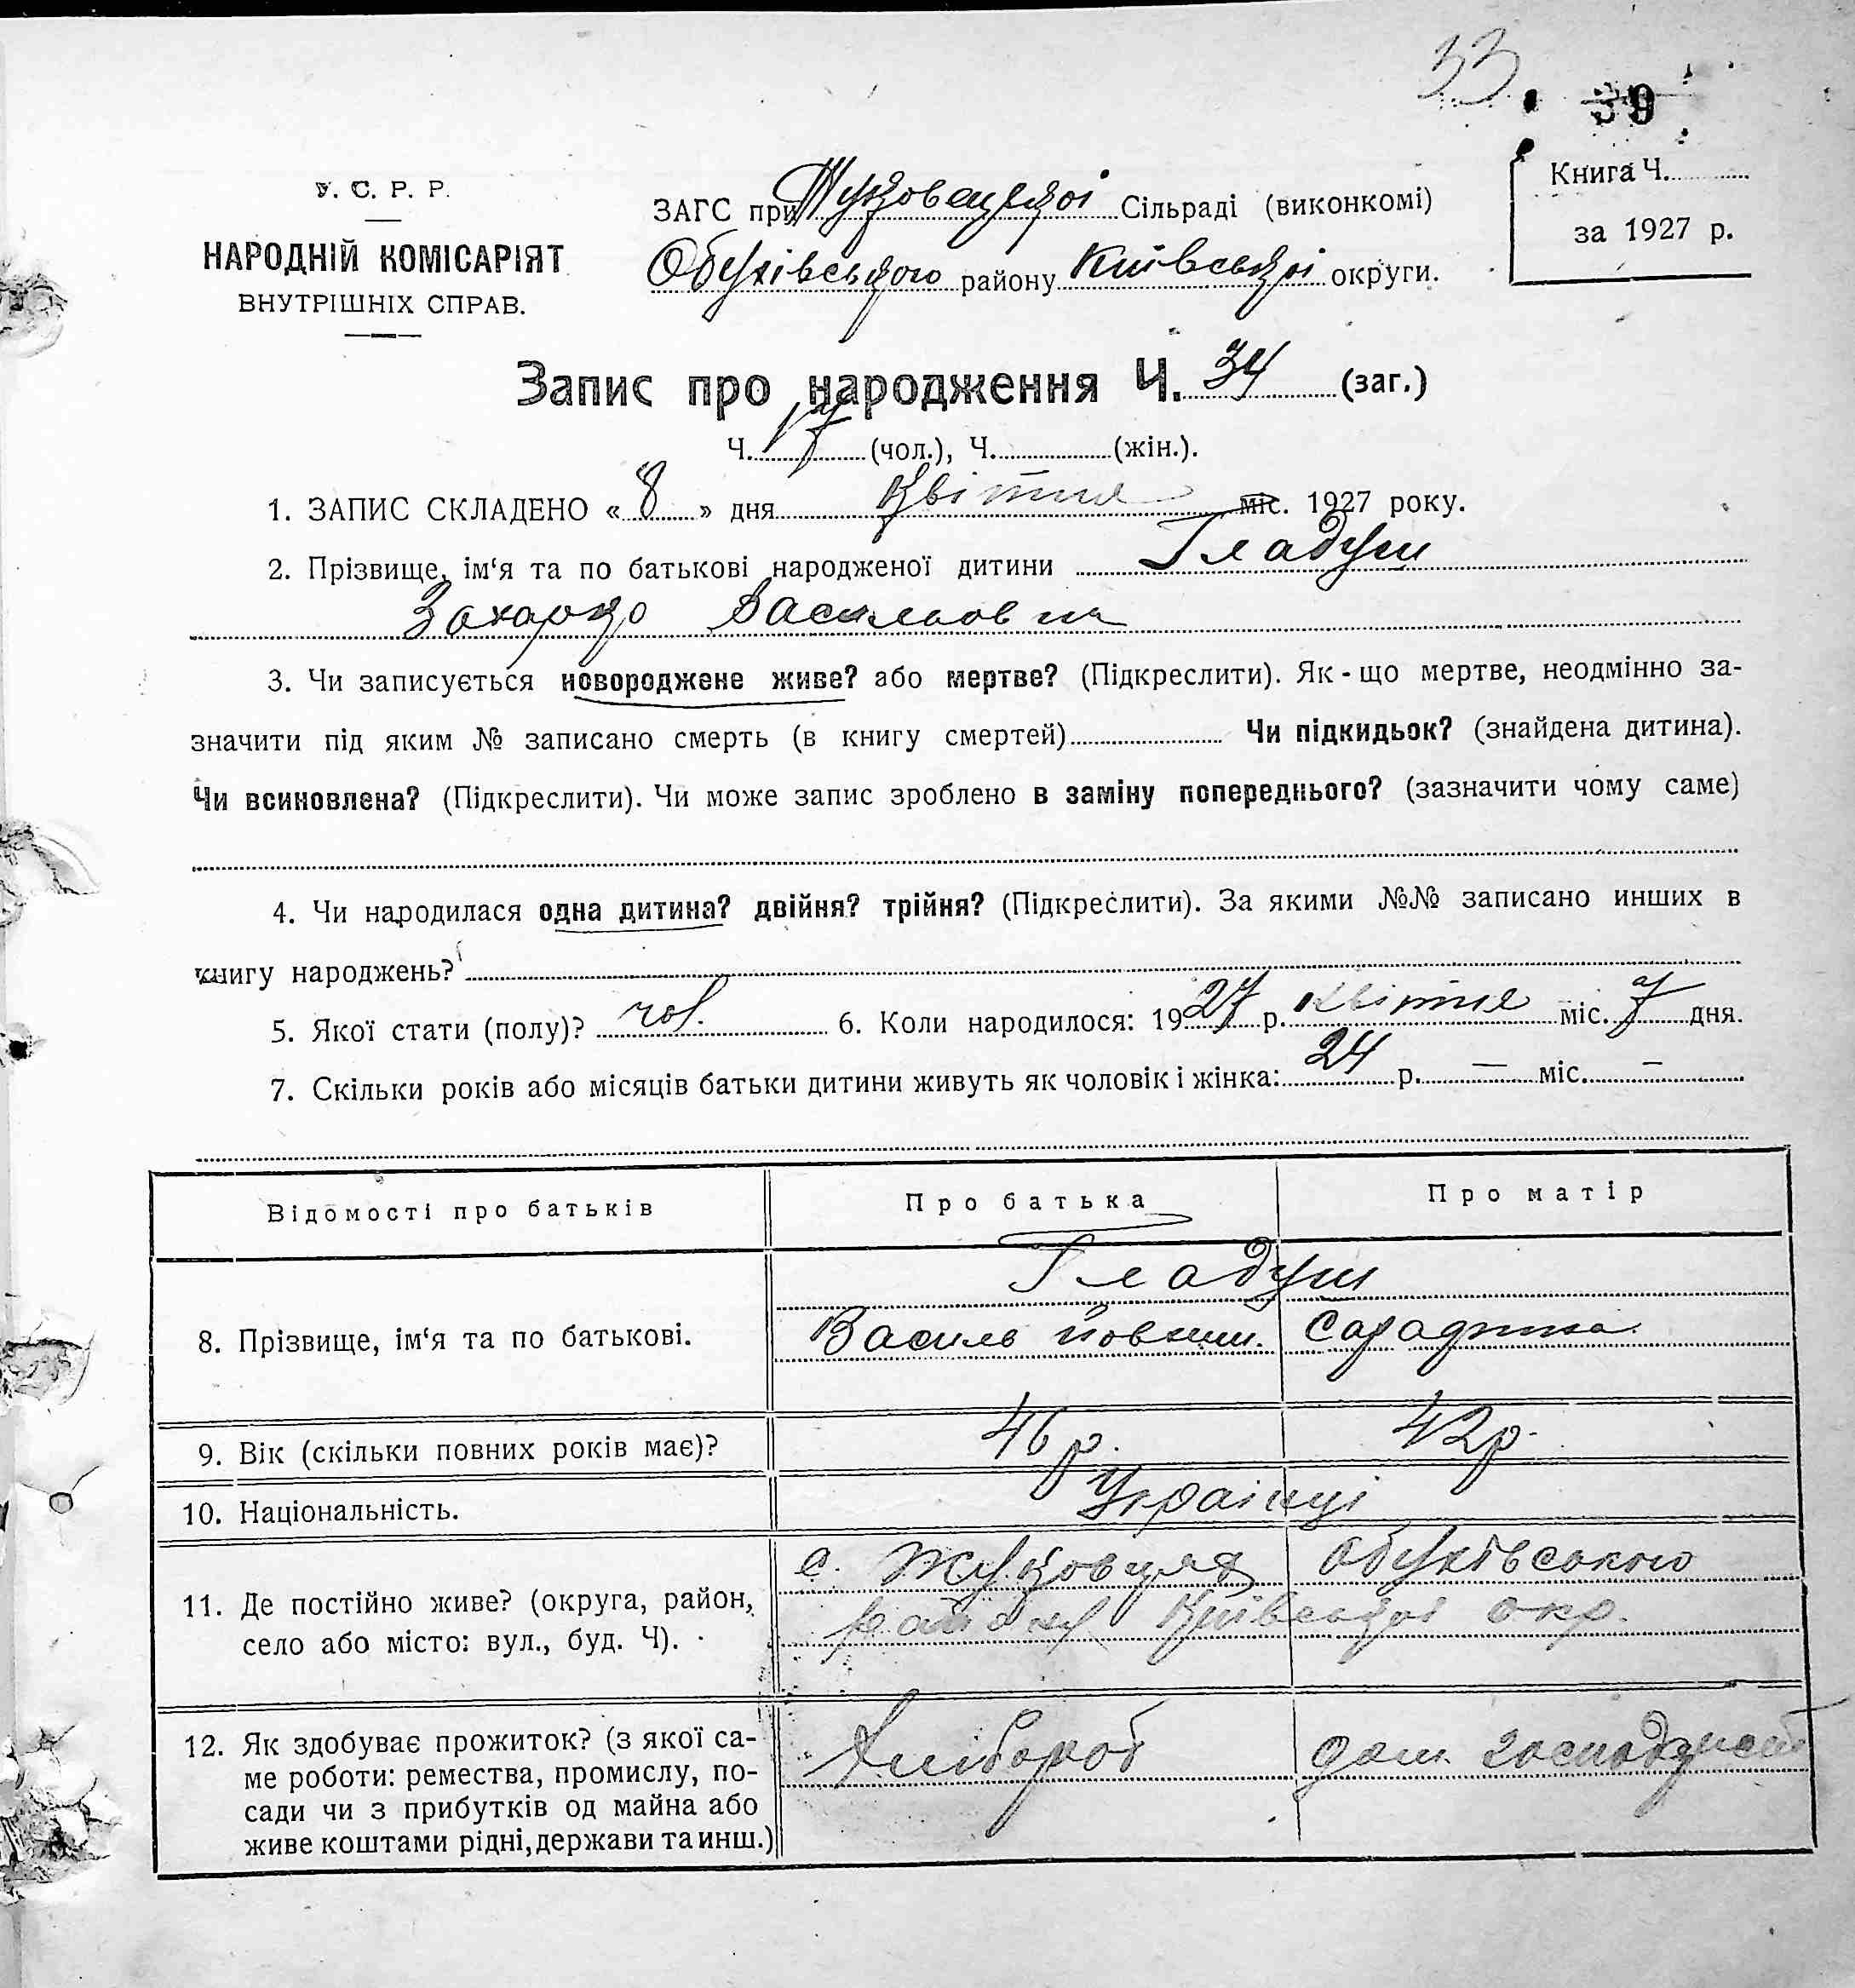 33
39
У. С. Р. Р.
НАРОДНІЙ КОМІСАРІЯТ
ВНУТРІШНІХ СПРАВ.
ЗАГС при Жуковецкоі Сільраді (виконкомі)
Обухівського району Київськоі округи.
Книга Ч.
за 1927 р.
Запис про народження Ч. 34 (заг.)
Ч. 17 (чол.), Ч. (жін.).
1. ЗАПИС СКЛАДЕНО « 8 » дня Квітня міс. 1927 року.
2. Прізвище, ім‘я та по батькові народженої дитини Гладуш
Захарко Васильович
3. Чи записується новороджене живе? або мертве? (Підкреслити). Як - що мертве, неодмінно за-
значити під яким № записано смерть (в книгу смертей) Чи підкидьок? (знайдена дитина).
Чи всиновлена? (Підкреслити). Чи може запис зроблено в заміну попереднього? (зазначити чому саме)
4. Чи народилася одна дитина? двійня? трійня? (Підкреслити). За якими №№ записано инших в
книгу народжень?
5. Якої стати (полу)? чол. 6. Коли народилося: 1927 р. Квітня міс. 7 дня.
7. Скільки років або місяців батьки дитини живуть як чоловік і жінка: 24 р. — міс. —
Відомості про батьків Про батька Про матір
Гладуш
8. Прізвище, ім‘я та по батькові. Василь
9. Вік (скільки повних років має)? 46 р. 42 р.
10. Національність. Українці
11. Де постійно живе? (округа, район,
село або місто: вул., буд. Ч).
с. Жуковцях Обухівського
району Київськоі окр.
12. Як здобуває прожиток? (з якої са-
ме роботи: ремества, промислу, по-
сади чи з прибутків од майна або
живе коштами рідні, держави та инш.)
Хлібороб дом.